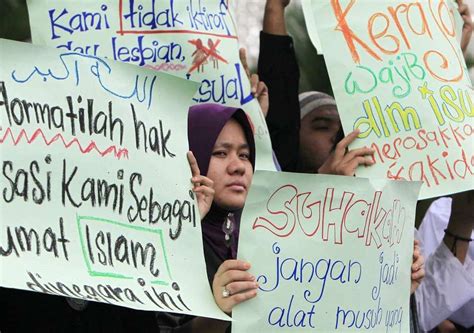 Kami tidak iktiraf
lesbian,
Kerajaan
wajib
dlm isu
merosakkan
akidah
Hormatilah hak
asasi Kami Sebagai
umat Islam
dinegara ini
SUHAKAM
jangan jadi
alat musuh yang